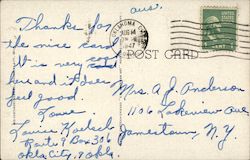 ans.
Thanks for
the nice card
It is very cool
here and it does
feel good.
Love
Louise Koelsch
Route 9 Box 306
Okla City, 9 Okla.
OKLAHOMA
AUG 14
1947
POST CARD
Mrs. A. J. Anderson
1106 Lakeview Ave
Jamestown, N.Y.